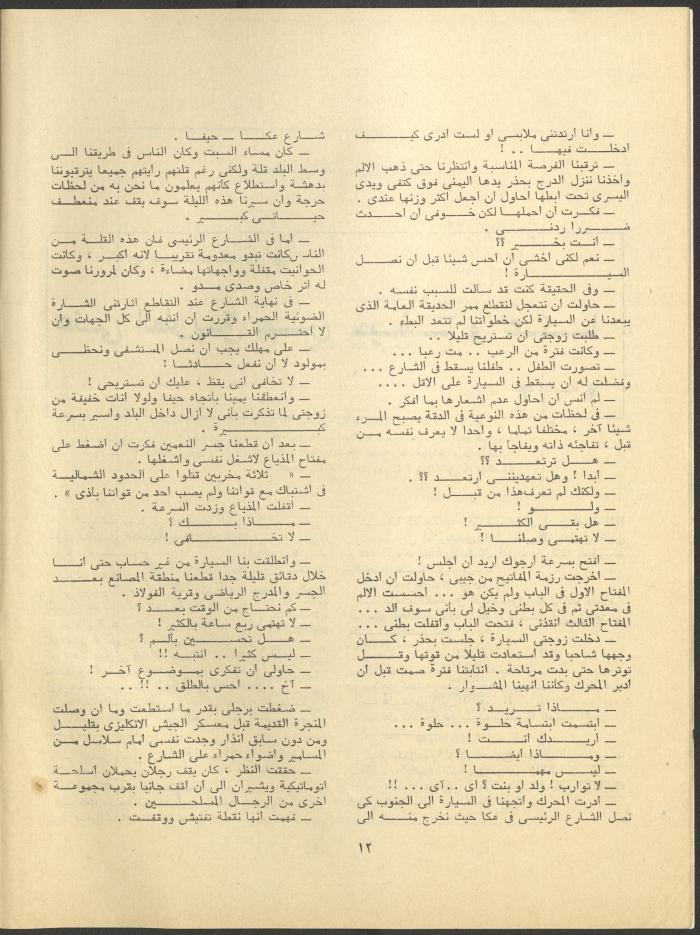 ــ وأنا ارتدتنى ملابسى او لست ادرى كيــــــف
ادخلـــت فيهـــــا .. !
ــ ترقبنا الفرصة المناسبة وانتظرنا حتى ذهب الالم
واخذنا ننزل الدرج بحذر يدها اليمنى فوق كتفى ويدى
اليسرى تحت ابطها احاول ان اجعل اكثر وزنها عندى .
ــ فكــرت أن احملهـا لكن خــــوفى أن احـــدث
ضــــــررا ردنـــــــى .
ــ انــت بخـــــير ؟؟
ــ نعم لكنى اخشى أن احس شيئا قبل ان نصـــل
السيــــــــــــارة !
ــ وفى الحقيقة كنت قد سألت للسبب نفسه .
ــ حاولت ان نتعجل لنقطع ممر الحديقة العامة الذى
يبعدنا عن السيارة لكن خطواتنا لم تتعد البطء .
ــ طلبت زوجتى ان تستريح قليلا ..
ــ وكانت فترة من الرعب .. مت رعبا ...
ــ تصورت الطفل .. طفلنا يسقط فى الشارع ...
وفضلت له ان يسقط فى السيارة على الاقل ....
ــ لم أنس ان احاول عدم اشعارها بما افكر .
ــ فى لحظات من هذه النوعية فى الدقة يصبح المــرء
شيئا آخر ، مختلفا تماما ، واحدا لا يعرف نفسه مــــن
قبل ، تفاجئه ذاته ويفاجأ بها .
ــ هــــل ترتعـــــد ؟؟
ــ ابدا ! وهل تعهديننـــى ارتعــــد ؟؟ .
ــ ولكنك لم تعرف هذا من قبـــــل !
ــ ولـــــــــو !
ــ هل بقــــى الكثـــــــير !
ــ لا تهتمـــى وصلنـــــا !
ــ افتح بسرعة ارجوك اريد ان اجلس !
ــ اخرجت رزمة المفاتيح من جيبى ، حاولت ان ادخل
المفتاح الاول فى الباب ولم يكن هو ... احسست الالم
فى معدتى ثم فى كل بطنى وخيل لى بأنى سوف الد ...
المفتاح الثالث انقذنى ، فتحت الباب وأقفلت بطنى ...
ــ دخلت زوجتى السيارة ، جلست بحذر ، كـــــان
وجهها شاحبا وقد استعادت قليلا من قوتها وقــــــل
توترها حتى بدت مرتاحة . انتابتنا فترة صمت قبل أن
ادير المحرك وكأننا أنهينا المشـــوار .
ــ مـــــــاذا تريـــــد ؟
ــ ابتسمت ابتسامة حلــوة ... حلوة ...
ــ اريـــــدك انــــــت !
ــ ومــــــــاذا ايضــــــا ؟
ــ ليـــــس مهمـــــــــا !
ــ لا توارب ! ولد او بنت ؟ اى ..آى ... !!
ــ ادرت المحرك واتجهنا فى السيارة الى الجنوب كى
نصل الشارع الرئيسى فى عكا حيث نخرج منـــــه الى
شــارع عكـــــا ـــ حيفــا .
ــ كان مساء السبت وكان الناس فى طريقنا الـــى
وسط البلد قلة ولكنى رغم قلتهم رأيتهم جميعا يترقبوننا
بدهشة واستطلاع كأنهم يعلمون ما نحن به من لحظات
حرجة وان سيرنا هذه الليلة سوف يقف عند منعطــف
حيــــــاتـــى كبيــــــر .
ــ أما فى الشـــارع الرئيسى فان هذه القلـــة مــــن
الناس كانت تبدو معدومة تقريبــا لانه اكبــر ، وكانت
الحوانيت مقفلة وواجهاتها مضاءة ، وكان لمرورنا صوت
له اثر خاص وصدى مــدو .
ــ فى نهاية الشارع عند التقاطع أثارتنى الشـــارة
الضوئية الحمراء وقررت ان انتبه الى كل الجهات وان
لا احتــــرم القــــــانون .
ــ على مهلك يجب ان نصل المستشفى ونحظـــى
بمولود لا ان نفعل حـــادثـــا !
ــ لا تخافى انى يقظ ، عليك ان تستريحى !
ــ وانعطفنا يمينا باتجاه حيفا ولولا انات خفيفة من
زوجتى لما تذكرت بأنى لا ازال داخل البلد واسير بسرعة
كبـــــــــــــيرة .
ــ بعد ان قطعنا جسر النعمين فكرت ان اضغط على
مفتاح المذياع لاشغل نفسى واشغلها .
ــ « ثلاثة مخربين قتلوا على الحدود الشماليـــة
فى اشتباك مع قواتنا ولم يصب احد من قواتنا بأذى » .
ــ اقفلت المذياع وزدت السرعة .
ــ مــــــاذا بـــــــك ؟
ــ لا تخـــــــــــافى !
ــ وانطلقت بنا السيارة من غير حساب حتى اننـــا
خلال دقائق قليلة جدا قطعنا منطقة المصانع بعـــــد
الجسر والمدرج الرياضى وقرية الفولاذ .
ــ كم نحتـــاج من الوقت بعـــــد ؟
ــ لا تهتمى ربع ساعة بالكثير !
ــ هــــل تحســـــين بألـــم ؟
ــ ليــس كثيرا .. انتبـــه !!
ــ حاولى أن تفكرى بمـــوضـــوع آخـــر !
ــ آخ .... احس بالطلق .. !! ..
ــ ضغطت برجلى بقدر ما استطعت وما ان وصلت
المنجرة القديمة قبل معسكر الجيش الانكليزى بقليــــل
ومن دون سابق انذار وجدت نفسى أمام سلاسل مــن
المسامير واضواء حمراء على الشارع .
ــ حققت النظر ، كان يقف رجلان يحملان اسلحــة
اتوماتيكية ويشيران الى ان اقف جانبا بقرب مجموعــة
اخرى من الرجــال المسلحـــــــين .
ــ فهمت انها نقطة تفتيش ووقفــــت .
١٢